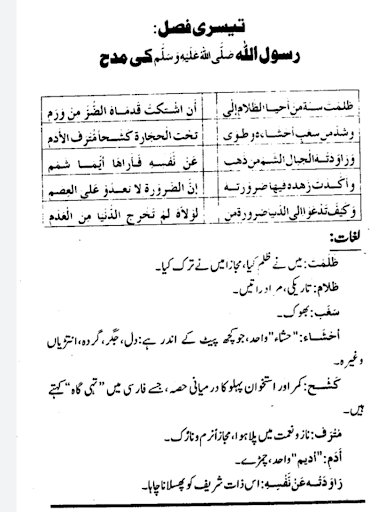 تیسری فصل:
رسول اللہ صَلَّى اللهُ عَلَيْهِ وَسَلَّم کی مدح
ظَلَمْتُ سُنَّةَ مَنْ أَحْيَا الظَّلَامَ إِلَى أَنِ اشْتَكَتْ قَدَمَاهُ الضُّرَّ مِنْ وَرَمِ
وَشَدَّ مِنْ سَغَبٍ أَحْشَاءَهُ وَطَوَى تَحْتَ الْحِجَارَةِ كَشْحًا مُتْرَفَ الْأَدَمِ
وَرَاوَدَتْهُ الْجِبَالُ الشُّمُّ مِنْ ذَهَبٍ عَنْ نَفْسِهِ فَأَرَاهَا أَيَّمَا شَمَمِ
وَأَكَّدَتْ زُهْدَهُ فِيهَا ضَرُورَتُهُ إِنَّ الضَّرُورَةَ لَا تَعْدُو عَلَى الْعِصَمِ
وَكَيْفَ تَدْعُوْا إِلَى الدُّنْيَا ضَرُورَةُ مَنْ لَوْلَاهُ لَمْ تَخْرُجِ الدُّنْيَا مِنَ الْعَدَمِ
لغات:
ظَلَمْتُ: میں نے ظلم کیا، مجازا میں نے ترک کیا۔
ظَلَام: تاریکی، مراد راتیں۔
سَغَب: بھوک۔
أَحْشَاء: "حشاء" واحد، جو کچھ پیٹ کے اندر ہے: دل، جگر، گردہ، انتڑیاں
وغیرہ۔
كَشْح: کمر اور استخوان پہلو کا درمیانی حصہ، جسے فارسی میں "تہی گاہ" کہتے
ہیں۔
مُتْرَف: ناز و نعمت میں پلا ہوا، مجازاً نرم و نازک۔
أَدَم: "ادیم" واحد، چمڑے۔
رَاوَدَتْهُ عَنْ نَّفْسِهِ: اس ذات شریف کو پھسلانا چاہا۔